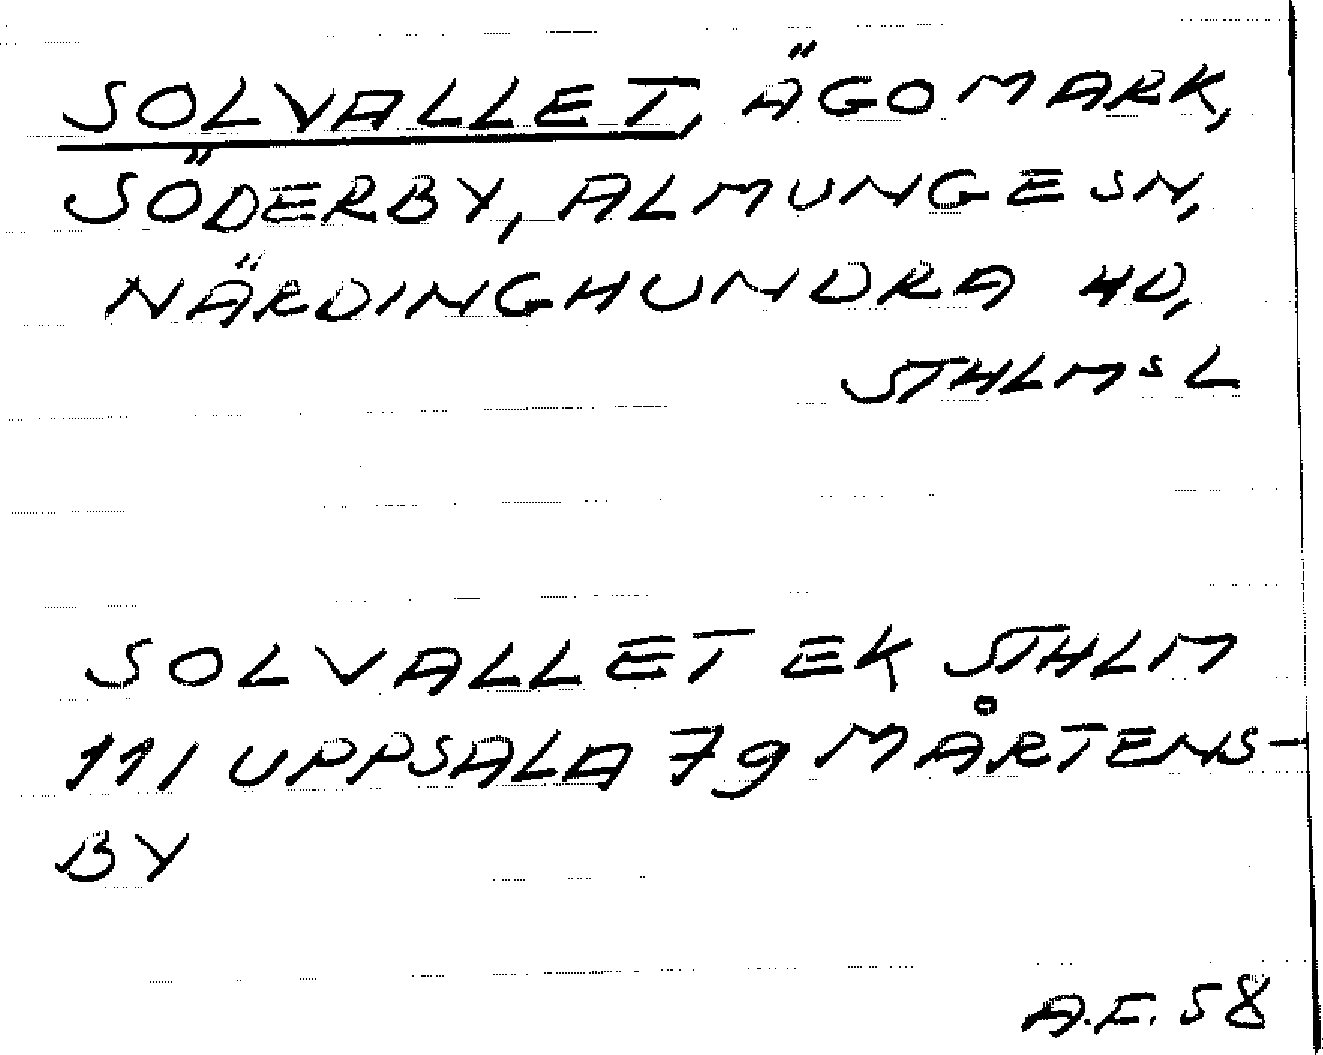 SOLVALLET, ÄGOMARK,
SÖDERBY, ALMUNGE SN,
NÄRDINGHUNDRA HD,
STHLMS L
SOLVALLET EK STHLM
111 UPPSALA 79 MÅRTENS-
BY
A.E. 58